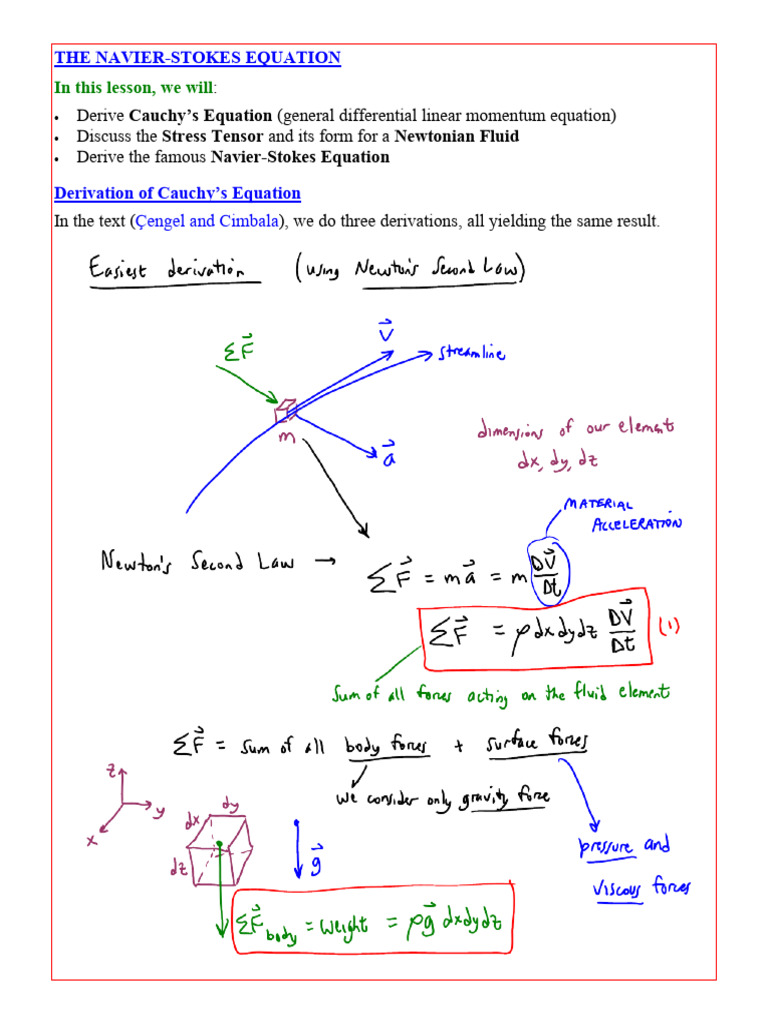 THE NAVIER-STOKES EQUATION
In this lesson, we will:
• Derive Cauchy's Equation (general differential linear momentum equation)
• Discuss the Stress Tensor and its form for a Newtonian Fluid
• Derive the famous Navier-Stokes Equation
Derivation of Cauchy's Equation
In the text (Çengel and Cimbala), we do three derivations, all yielding the same result.
Easiest derivation (using Newton's Second Law)
ΣF⃗
V⃗
streamline
m
a⃗
dimensions of our element
dx, dy, dz
MATERIAL
ACCELERATION
Newton's Second Law → ΣF⃗ = ma⃗ = m DV⃗/Dt
ΣF⃗ = ρdxdydz DV⃗/Dt (1)
Sum of all forces acting on the fluid element
ΣF⃗ = sum of all body forces + surface forces
we consider only gravity force
z
y
x
dx
dy
dz
g⃗
pressure and
viscous forces
ΣF⃗body = weight = ρg⃗ dxdydz